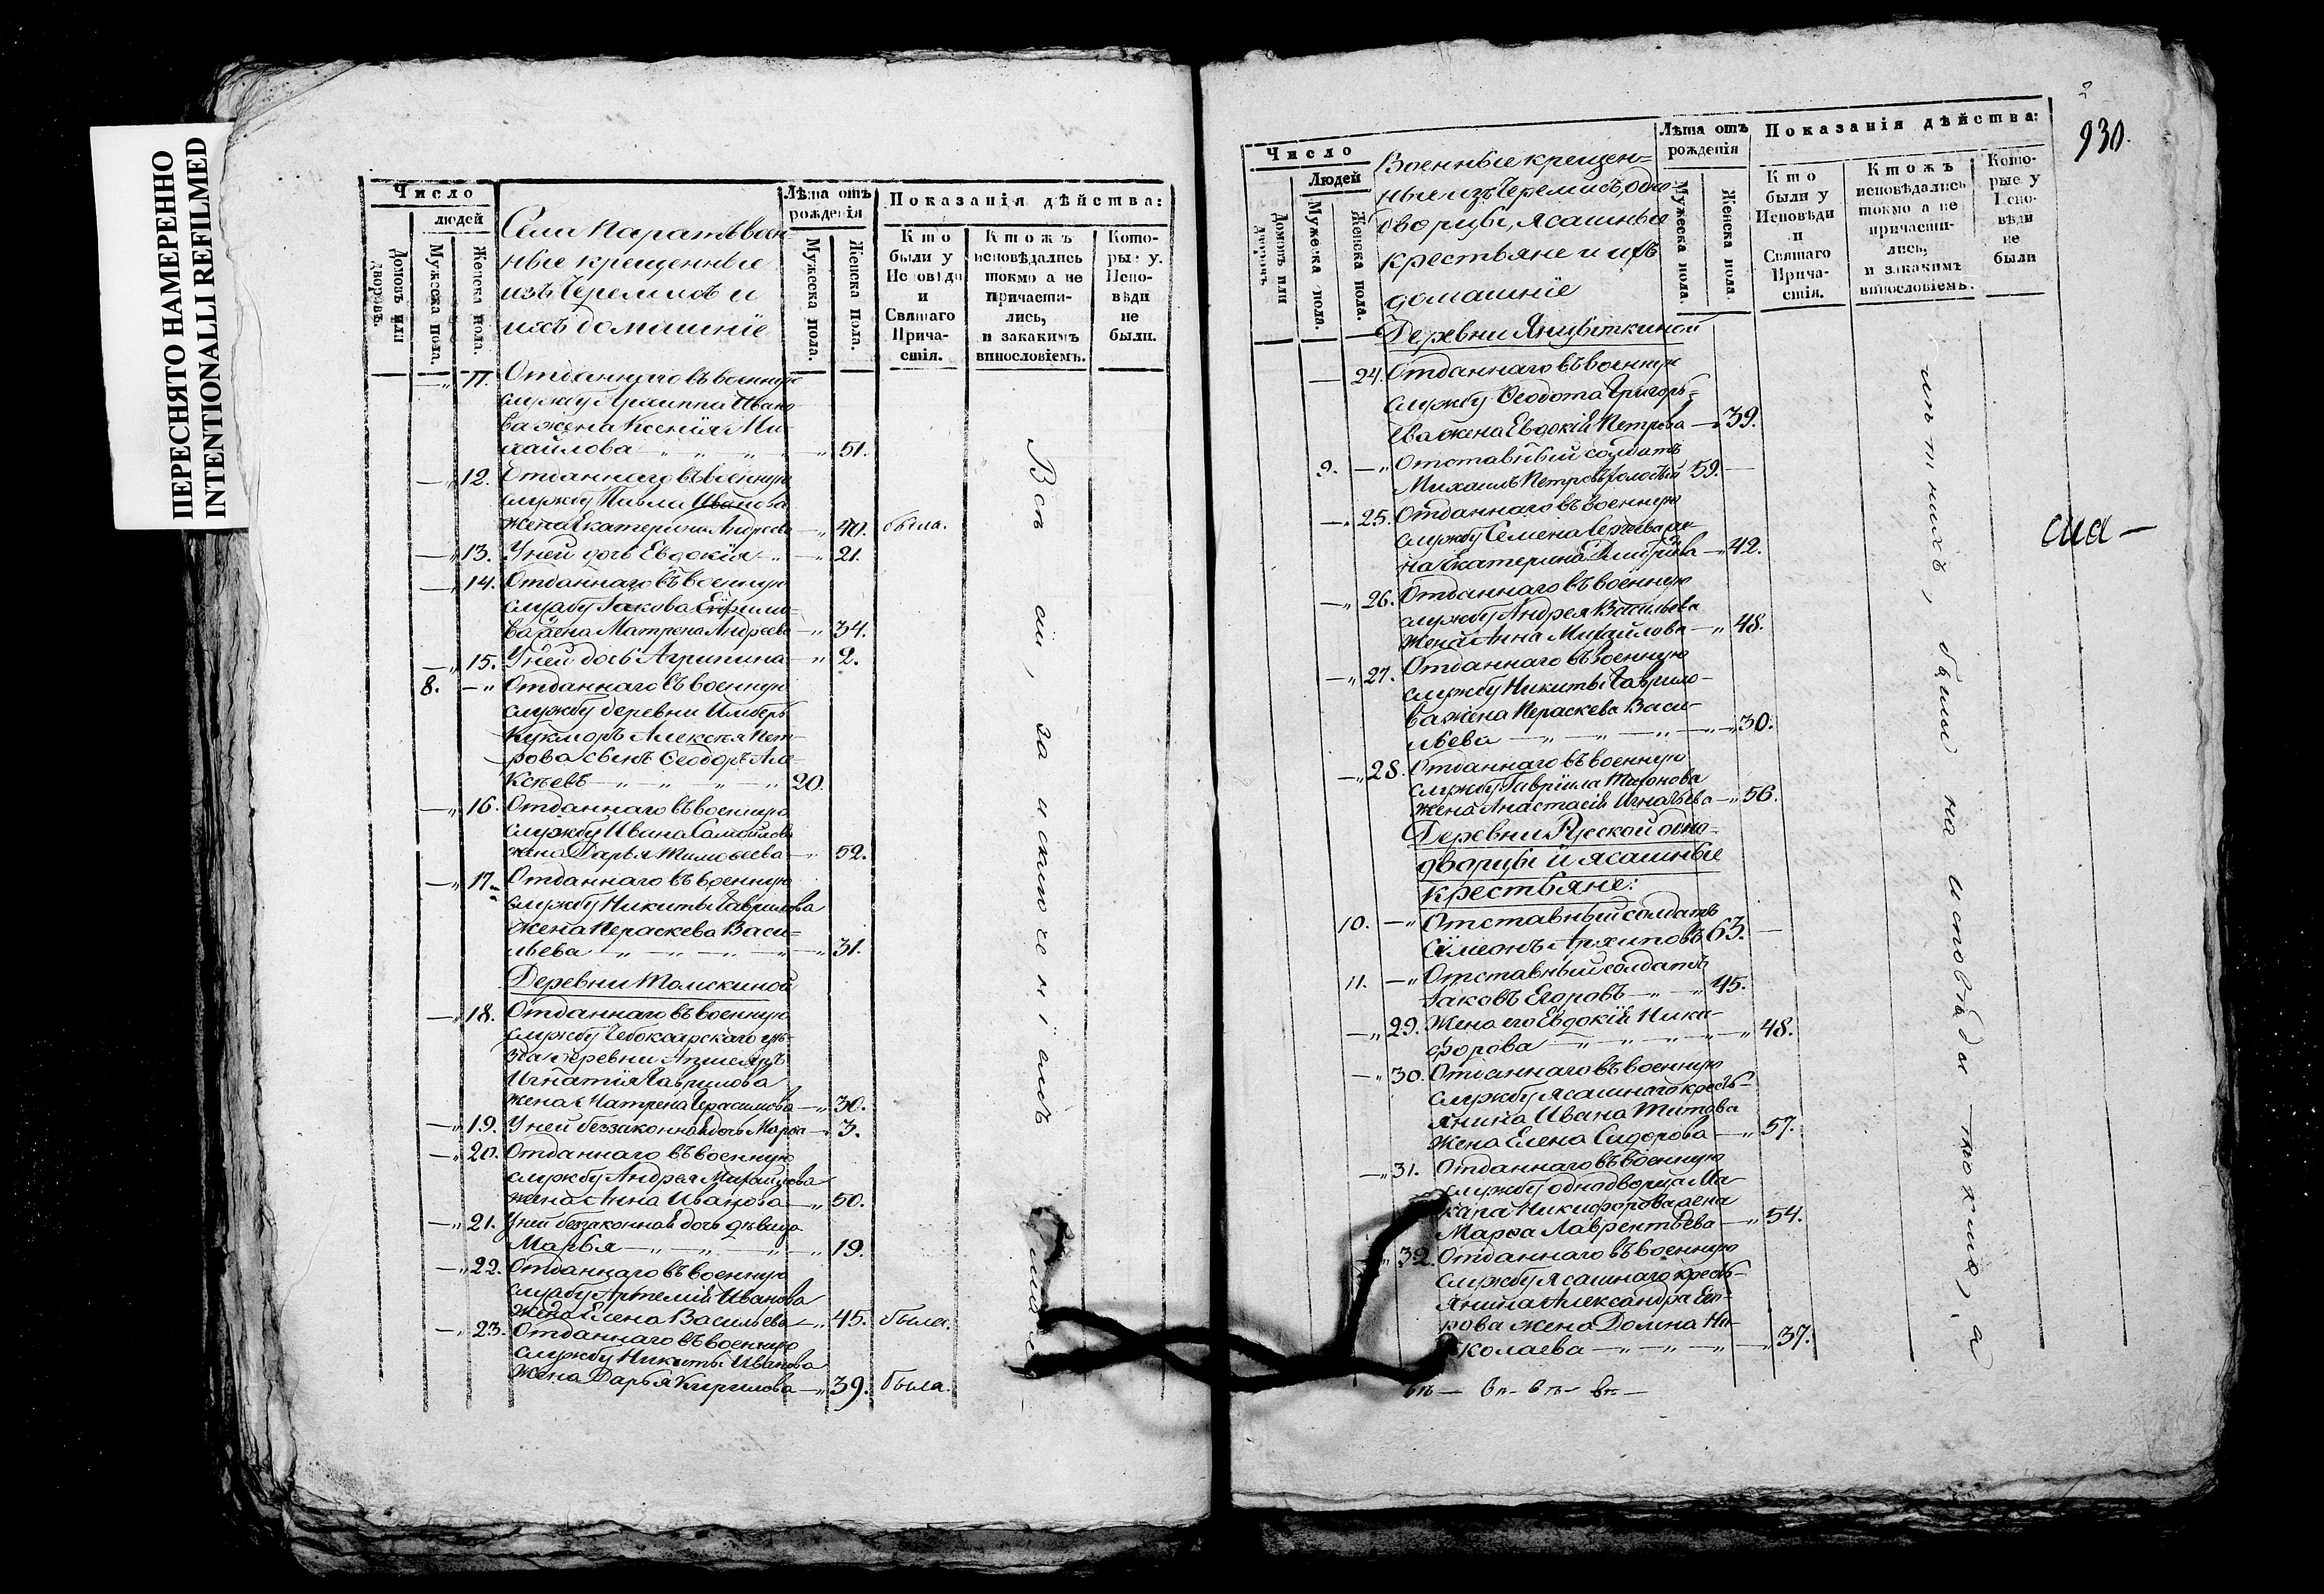 ПЕРЕСНЯТО НАМЕРЕННО
INTENTIONALLI REFILMED
Число
людей
Домовъ или дворовъ.
Мужеска пола.
Женска пола.
Села Паратъ воен-
ные крещенные
изъ Черемисъ и
ихъ домашнiе
Лѣта отъ рожденiя
Мужеска пола.
Женска пола.
Показанiя дѣйства:
Кто были у Исповѣди и Святаго Прича-стiя.
Ктожъ исповѣдались токмо а не причасти-лись, и закакимъ винословiемъ.
Кото-рые у Испо-вѣди не были.
— „ 11. Отданнаго въ военную
службу Архиппа Ивано-
ва жена Ксенiя Ми-
хайлова — „ 51.
— „ 12. Отданнаго въ военную
службу Павла Иванова
жена Екатерина Андреева — „ 40. была.
— „ 13. У ней дочь Евдокiя — „ 21.
— „ 14. Отданнаго въ военную
службу Iакова Ефимо-
ва жена Матрена Андреева — „ 34.
— „ 15. У ней дочь Агрипина — „ 2.
8. — „ Отданнаго въ военную
службу деревни
Кукморъ Алексѣя Пет-
рова сынъ Ѳеодоръ Але-
ксѣевъ — „ — „ — „ 20.
— „ 16. Отданнаго въ военную
службу Ивана Самойлова
жена Дарья Тимоѳеева — „ 52.
— „ 17. Отданнаго въ военную
службу Никиты Гаврилова
жена Пераскева Васи-
льева — „ — „ — „ 31.
Деревни Томскиной
— „ 18. Отданнаго въ военную
службу Чебоксарскаго уѣ-
зда деревни
Игнатiя Гаврилова
жена Матрена Герасимова — „ 30.
— „ 19. У ней беззаконная дочь Марѳа — „ 3.
— „ 20. Отданнаго въ военную
службу Андрея Михайлова
жена Анна Иванова — „ 50.
— „ 21. У ней беззаконная дочь дѣвица
Марья — „ — „ — „ 19.
— „ 22. Отданнаго въ военную
службу Артемiя Иванова
жена Елена Васильева — „ 45. была.
— „ 23. Отданнаго въ военную
службу Никиты Иванова
жена Дарья Кирилова — „ 39. была.
Всѣ сiи, за исключенiемъ
930.
Число
Людей
Домовъ или дворовъ
Мужеска пола.
Женска пола.
Военные крещен-
ные изъ Черемисъ, одно-
дворцы, ясашные
крестьяне и ихъ
домашнiе
Лѣта отъ рожденiя
Мужеска пола.
Женска пола.
Показанiя дѣйства:
Кто были у Исповѣди и Святаго Прича-стiя.
Ктожъ исповѣдались токмо а не причасти-лись, и закакимъ винословiемъ.
Кото-рые у Испо-вѣди не были
Деревни Янцыткиной
— 24. Отданнаго въ военную
службу Ѳеодота Григорь-
ева жена Евдокiя Петрова — „ 39.
9. — „ Отставный солдатъ
Михаилъ Петровъ 59. —
— „ 25. Отданнаго въ военную
службу Семена Сергѣева же-
на Екатерина Дмитрiева — „ 42.
— „ 26. Отданнаго въ военную
службу Андрея Васильева
жена Анна Михайлова — „ 48.
— „ 27. Отданнаго въ военную
службу Никиты Гаврило-
ва жена Пераскева Васи-
льева — „ — „ — „ 30.
— „ 28. Отданнаго въ военную
службу Гаврiила Тихонова
жена Анастасiя Игнатьева — „ 56.
Деревни Русской одно-
дворцы и ясашные
крестьяне:
10. — „ Отставный солдатъ
Симеонъ Архиповъ 63. —
11. — „ Отставный солдатъ
Iаковъ Егоровъ — „ 45.
— „ 29. Жена его Евдокiя Ники-
форова — „ — „ — „ 48.
— „ 30. Отданнаго въ военную
службу ясашнаго кресть-
янина Ивана Титова
жена Елена Сидорова — „ 57.
— „ 31. Отданнаго въ военную
службу однодворца Ма-
кара Никифорова жена
Марѳа Лаврентьева — „ 54.
— „ 32. Отданнаго въ военную
службу ясашнаго кресть-
янина Александра Его-
рова жена Домна Ни-
колаева — „ — „ — „ 37.
были на исповѣди токмо, а